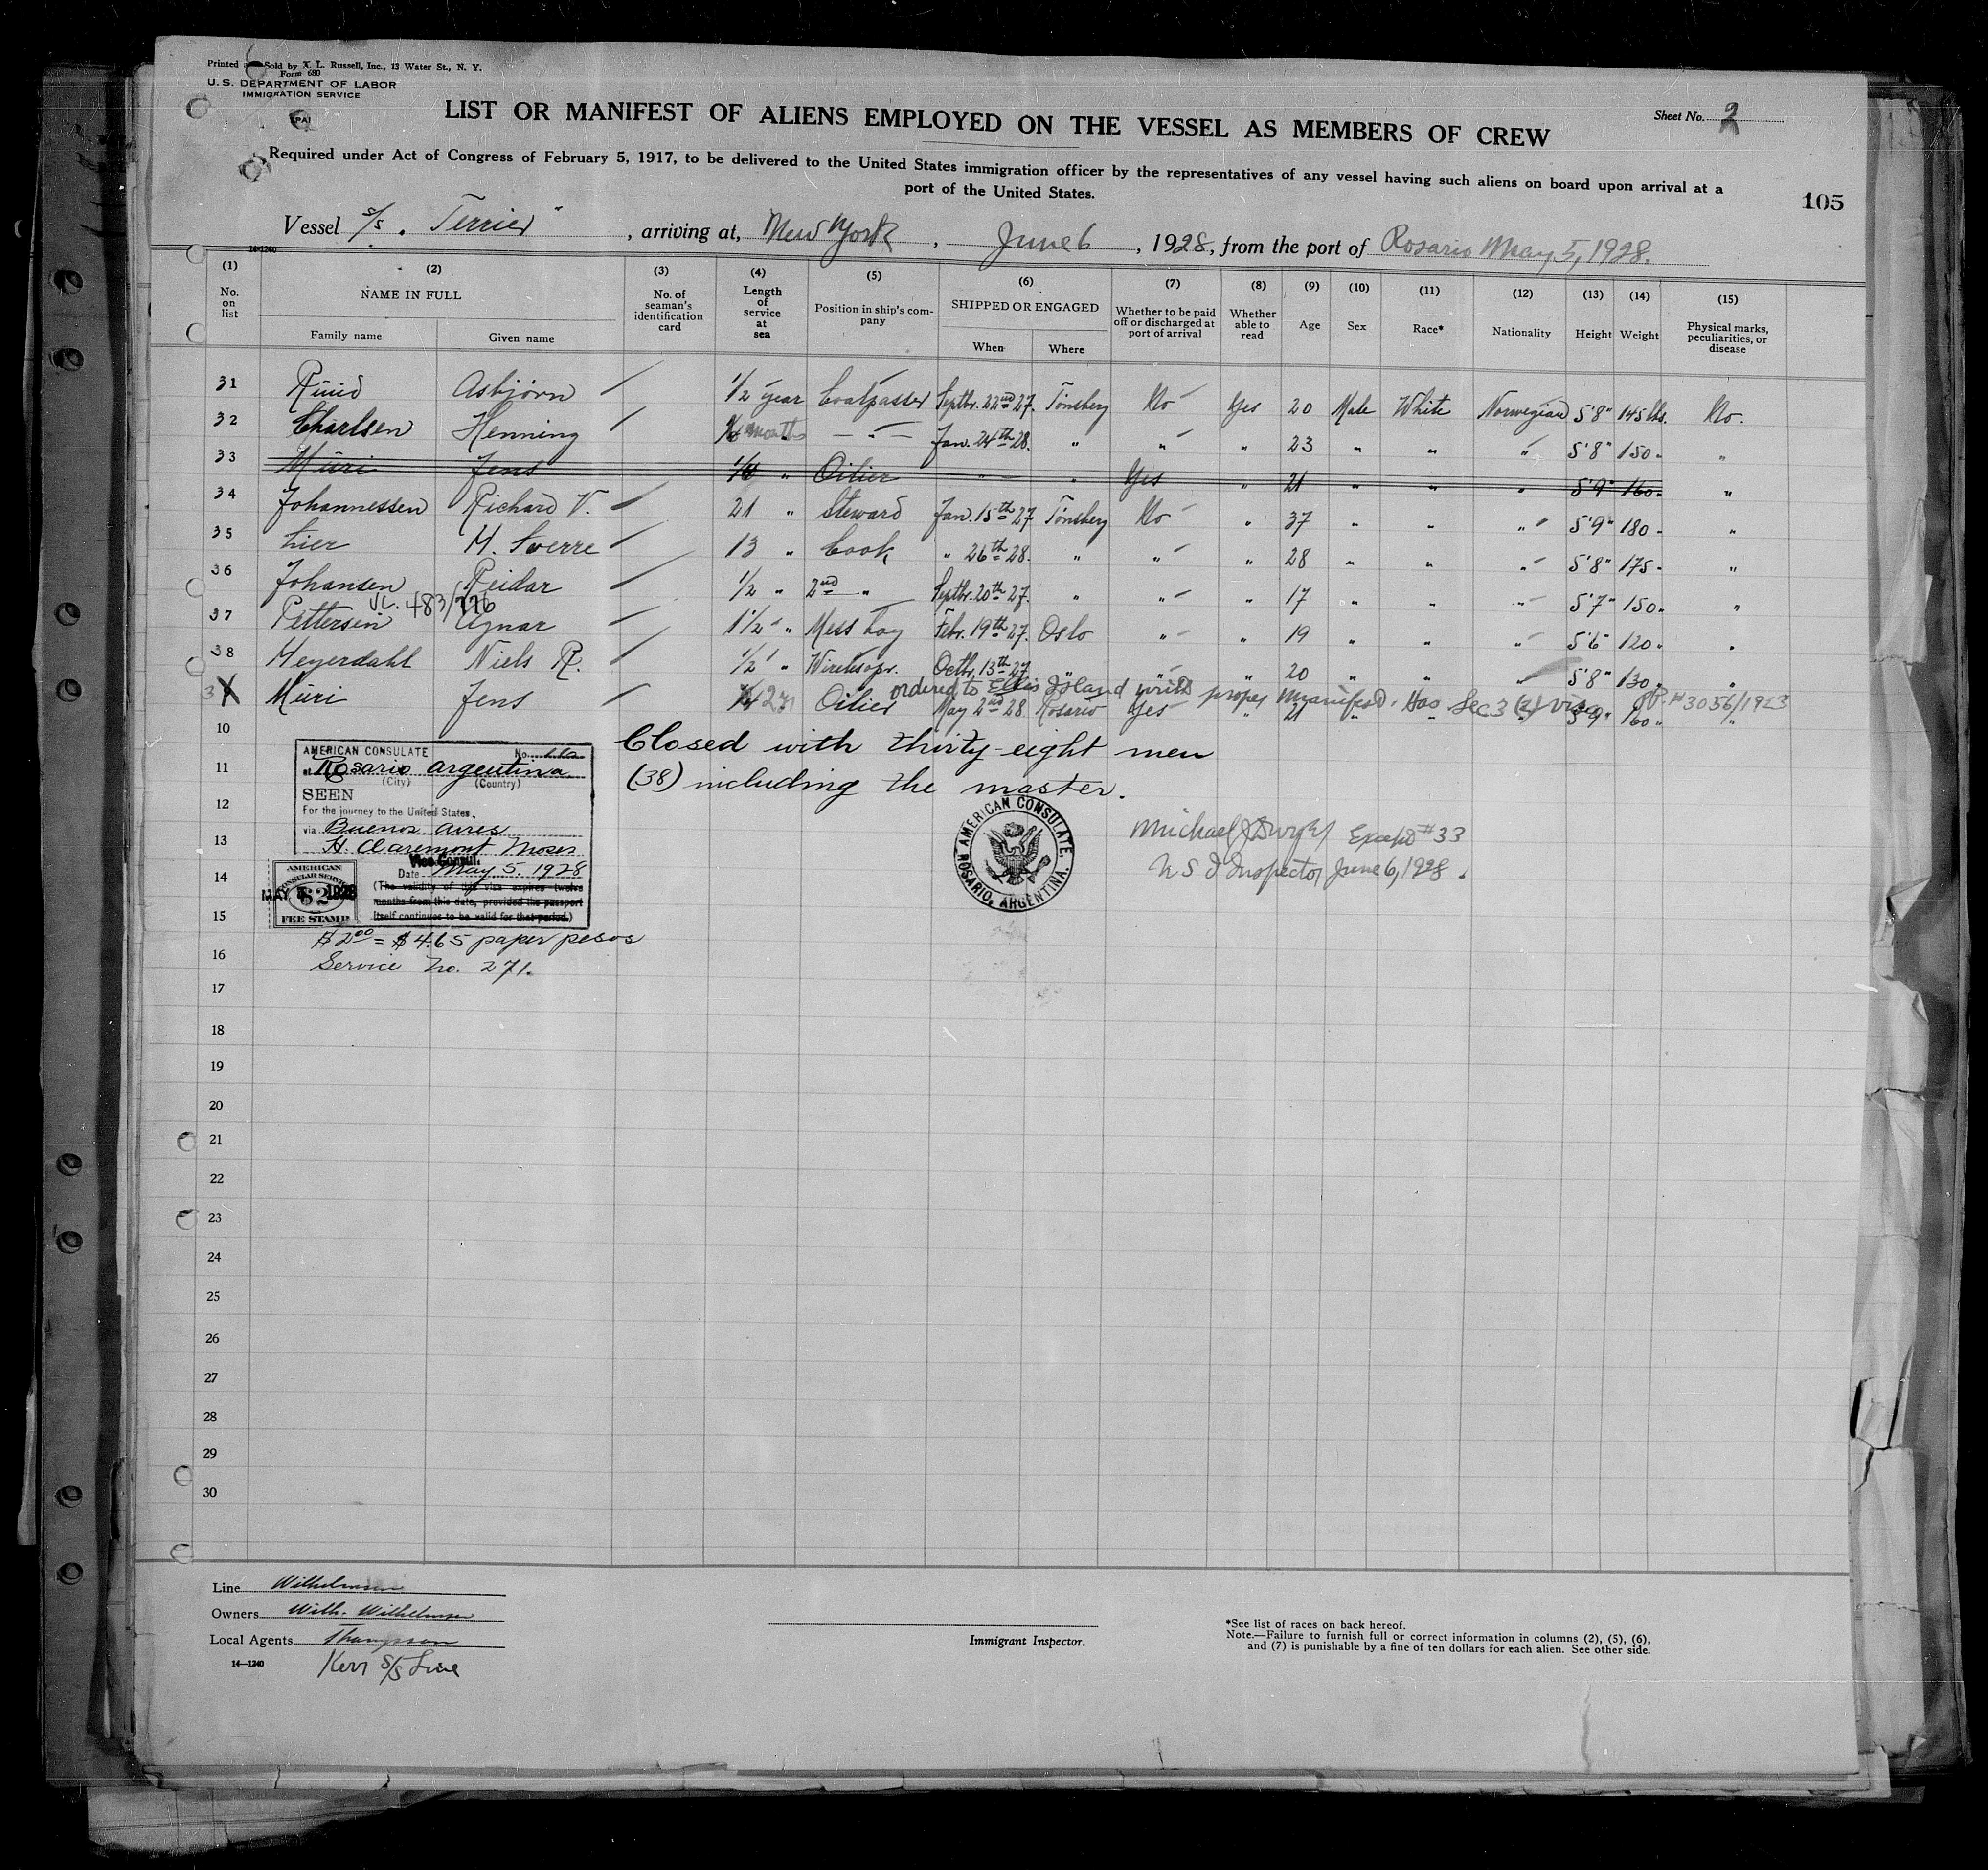 Printed and Sold by A. L. Russell, Inc., 13 Water St., N. Y.
Form 680
U. S. DEPARTMENT OF LABOR
IMMIGRATION SERVICE
LIST OR MANIFEST OF ALIENS EMPLOYED ON THE VESSEL AS MEMBERS OF CREW
Sheet No. 2
Required under Act of Congress of February 5, 1917, to be delivered to the United States immigration officer by the representatives of any vessel having such aliens on board upon arrival at a
port of the United States.
105
Vessel s/s. Terrier", arriving at, New York, June 6, 1928, from the port of Rosario May 5, 1928.
14-1240
(1) No. on list
(2) NAME IN FULL Family name Given name
(3) No. of seaman's identification card
(4) Length of service at sea
(5) Position in ship's company
(6) SHIPPED OR ENGAGED When Where
(7) Whether to be paid off or discharged at port of arrival
(8) Whether able to read
(9) Age
(10) Sex
(11) Race*
(12) Nationality
(13) Height
(14) Weight
(15) Physical marks, peculiarities, or disease
31 Ruud Asbjörn / 1/2 year Coalpasser Septbr. 22nd 27. Tönsberg No Yes 20 Male White Norwegian 5'8" 145 lbs. No.
32 Charlsen Henning / months — " — Jan. 24th 28. " " " 23 " " " 5'8" 150 " "
33 Müri Jens " Oilier " " Yes " 21 " " " 5'9" 160 " "
34 Johannessen Richard V. / 21 " Steward Jan. 15th 27 Tönsberg No " 37 " " " 5'9" 180 " "
35 Lier H. Sverre / 13 " Cook " 26th 28. " " " 28 " " " 5'8" 175 " "
36 Johansen Reidar / 1/2 " 2nd " Septbr. 20th 27. " " " 17 " " " 5'7" 150 " "
483/776
37 Pettersen Agnar / 1 1/2 " Mess boy Febr. 19th 27. Oslo " " 19 " " " 5'6" 120 " "
38 Heyerdahl Niels R. / 1/2 " Wirelsopr. Octbr. 13th 27 " " " 20 " " " 5'8" 130 " "
ordered to Ellis Island with proper manifest. Has Sec 3 (2) visa #3056/1923
Müri Jens / Oilier May 2nd 28 Rosario Yes " 21 " " 5'9" 160 " "
10
Closed with thirty-eight men
11
(38) including the master.
12
13
14
15
AMERICAN CONSULATE No.
at Rosario Argentina
(City) (Country)
SEEN
For the journey to the United States,
via Buenos Aires
H. Claremont Moses
Vice Consul.
Date May 5. 1928
(The validity of this visa expires twelve
months from this date, provided the passport
itself continues to be valid for that period.)
AMERICAN
CONSULAR SERVICE
$2
FEE STAMP
MAY 5 1928
AMERICAN CONSULATE, ROSARIO, ARGENTINA.
Michael J Dwyer Except #33
U S I Inspector June 6, 1928.
$2.00 = $4.65 paper pesos
16
Service No. 271.
17
18
19
20
21
22
23
24
25
26
27
28
29
30
Line Wilhelmsen
Owners Wilh. Wilhelmsen
Local Agents
14—1240
Kerr S/S Line
Immigrant Inspector.
*See list of races on back hereof.
Note.—Failure to furnish full or correct information in columns (2), (5), (6),
and (7) is punishable by a fine of ten dollars for each alien. See other side.